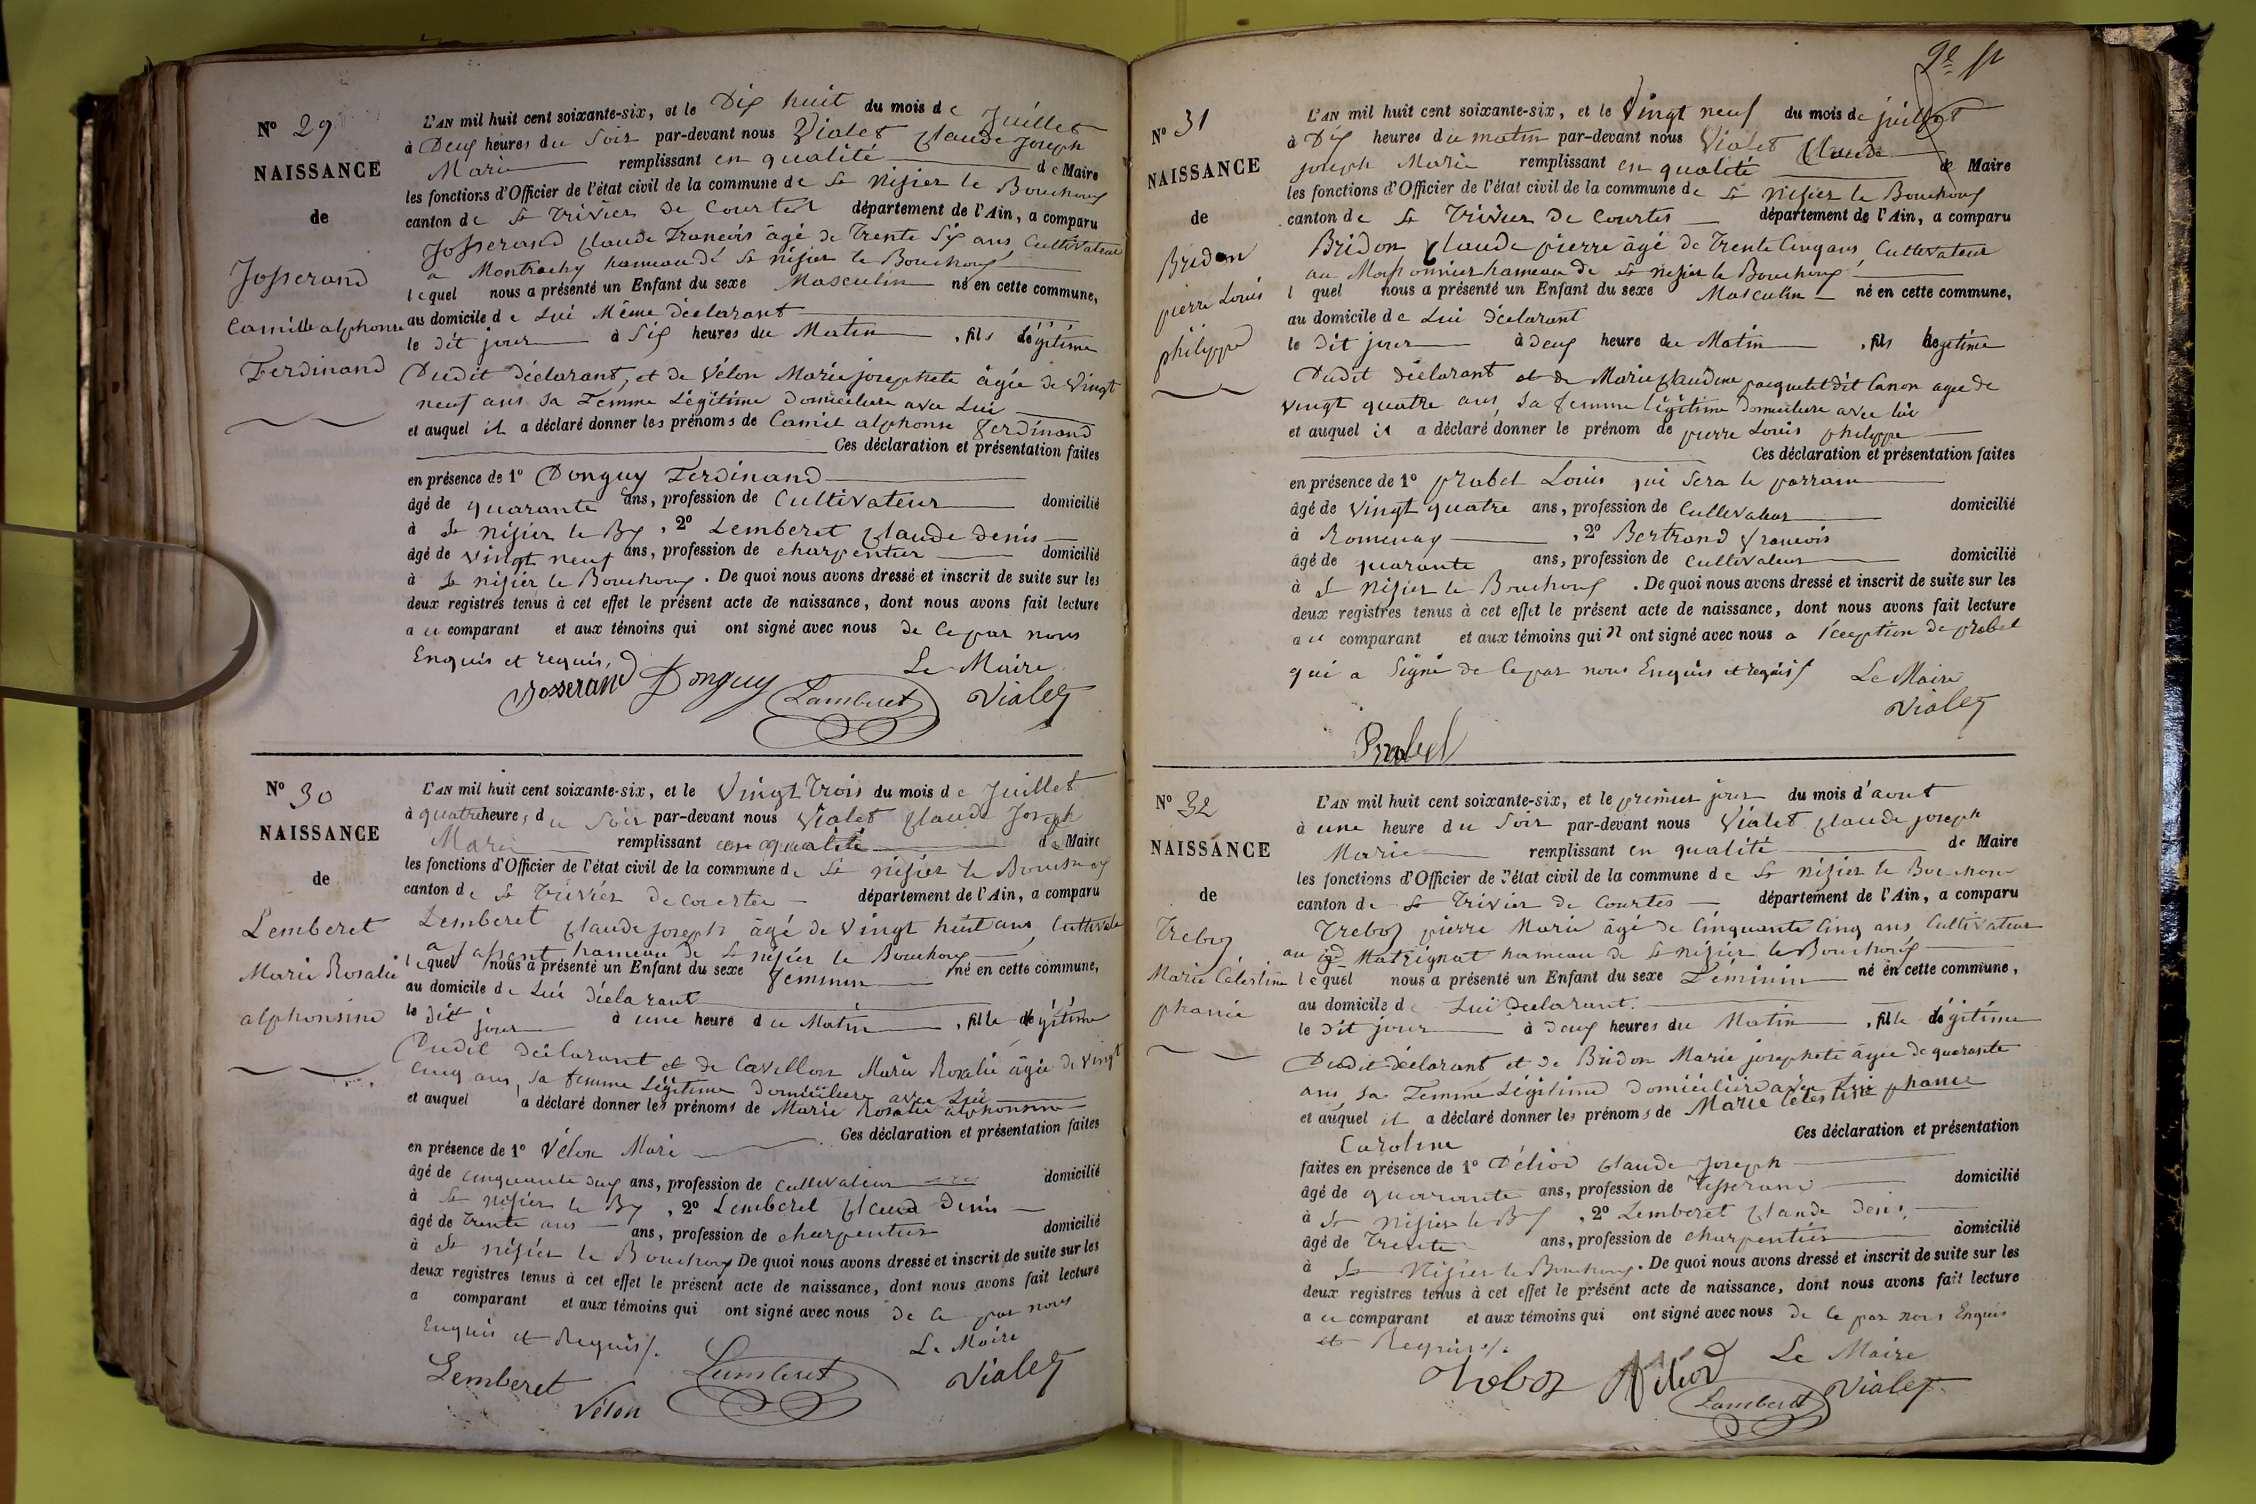 N° 29
NAISSANCE
de
Josserand
Camille alphonse
Ferdinand
L'AN mil huit cent soixante-six, et le Dix huit du mois de Juillet
à Deux heures du Soir par-devant nous Vialet Claude Joseph
Marie remplissant en qualité de Maire
les fonctions d'Officier de l'état civil de la commune de St Nizier le Bouchoux
canton de St Trivier de Courtes département de l'Ain, a comparu
Josserand Claude François âgé de Trente Six ans, Cultivateur
a Montrachy hameau de St nizier le Bouchoux
lequel nous a présenté un Enfant du sexe Masculin né en cette commune,
au domicile de Lui Même déclarant
le dit jour à Six heures du Matin, fils légitime
Dudit déclarant, et de Vélon Marie josephete âgée de Vingt
neuf ans sa Femme Légitime Domiciliée avec Lui
et auquel il a déclaré donner les prénoms de Camil alphonse ferdinand
Ces déclaration et présentation faites
en présence de 1° Donguy Ferdinand
âgé de quarante ans, profession de Cultivateur domicilié
à St nizier le Bx, 2° Lemberet Claude denis
âgé de vingt neuf ans, profession de charpentier domicilié
à St nizier le Bouchoux. De quoi nous avons dressé et inscrit de suite sur les
deux registres tenus à cet effet le présent acte de naissance, dont nous avons fait lecture
au comparant et aux témoins qui ont signé avec nous de ce par nous
Enquis et requis.
Le Maire
Josserand Donguy Lamberet Vialet
N° 30
NAISSANCE
de
Lemberet
Marie Rosalie
alphonsine
L'AN mil huit cent soixante-six, et le Vingt Trois du mois de Juillet
à quatre heures du Soir par-devant nous Vialet Claude Joseph
Marie remplissant en qualité de Maire
les fonctions d'Officier de l'état civil de la commune de St nizier le Bouchoux
canton de St Trivier de courtes département de l'Ain, a comparu
Lemberet Claude joseph âgé de Vingt huit ans Cultivate
a hameau de St nizier le Bouchoux
lequel nous a présenté un Enfant du sexe feminin né en cette commune,
au domicile de Lui déclarant
le dit jour à une heure du Matin, fille légitime
Dudit déclarant et de Cavillon Marie Rosalie âgée de vingt
cinq ans, sa femme Légitime Domiciliée avec Lui
et auquel a déclaré donner les prénoms de Marie Rosalie alphonsine
Ces déclaration et présentation faites
en présence de 1° Vélon Marie
âgé de cinquante deux ans, profession de cultivateur domicilié
à St nizier le Bx, 2° Lemberet Claude Denis
âgé de Trente ans ans, profession de charpentier domicilié
à St nizier le Bouchoux De quoi nous avons dressé et inscrit de suite sur les
deux registres tenus à cet effet le présent acte de naissance, dont nous avons fait lecture
a comparant et aux témoins qui ont signé avec nous de ce par nous
Enquis et Requis/.
Le Maire
Lemberet Vélon Lamberet Vialet
2e
N° 31
NAISSANCE
de
Bridon
pierre Louis
philippe
L'AN mil huit cent soixante-six, et le Vingt neuf du mois de juillet
à Dix heures du matin par-devant nous Vialet Claude
Joseph Marie remplissant en qualité de Maire
les fonctions d'Officier de l'état civil de la commune de St nizier le Bouchoux
canton de St Trivier de Courtes département de l'Ain, a comparu
Bridon Claude pierre âgé de Trente Cinq ans, Cultivateur
au Moissonnier hameau de St nizier le Bouchoux
l quel nous a présenté un Enfant du sexe Masculin né en cette commune,
au domicile de Lui déclarant
le dit jour à deux heure du Matin, fils légitime
Dudit déclarant et de Marie Claudine pacquelet dit Canon agée de
vingt quatre ans, sa femme légitime Domiciliée avec lui
et auquel il a déclaré donner le prénom de pierre Louis philippe
Ces déclaration et présentation faites
en présence de 1° probel Louis qui sera le parrain
âgé de vingt quatre ans, profession de Cultivateur domicilié
à Romenay, 2° Bertrand François
âgé de quarante ans, profession de cultivateur domicilié
à St Nizier le Bouchoux. De quoi nous avons dressé et inscrit de suite sur les
deux registres tenus à cet effet le présent acte de naissance, dont nous avons fait lecture
au comparant et aux témoins qui n ont signé avec nous a l'ception de probel
qui a Signé de ce par nous Enquis et requis/
Le Maire
Vialet
Probel
N° 32
NAISSANCE
de
Treboz
Marie Célestine
phanie
L'AN mil huit cent soixante-six, et le premier jour du mois d'aout
à une heure du Soir par-devant nous Vialet Claude joseph
Marie remplissant en qualité de Maire
les fonctions d'Officier de l'état civil de la commune de St nizier le Bouchoux
canton de St Trivier de Courtes département de l'Ain, a comparu
Treboz pierre Marie âgé de Cinquante Cinq ans Cultivateur
au gd Matrignat hameau de St nizier le Bouchoux
lequel nous a présenté un Enfant du sexe Féminin né en cette commune,
au domicile de Lui Declarant.
le dit jour à deux heures du Matin, fille légitime
Dudit déclarant et de Bridon Marie josephete âgée de quarante
ans, sa Femme Légitime domiciliée avec Lui
et auquel il a déclaré donner les prénoms de Marie Célestine phanie
Caroline
Ces déclaration et présentation
faites en présence de 1° Péliod Claude Joseph
âgé de quarante ans, profession de Tisserand domicilié
à St Nizier le Bx, 2° Lemberet Claude denis
âgé de Trente ans, profession de charpentier domicilié
à St Nizier le Bouchoux. De quoi nous avons dressé et inscrit de suite sur les
deux registres tenus à cet effet le présent acte de naissance, dont nous avons fait lecture
au comparant et aux témoins qui ont signé avec nous de ce par nous Enquis
et Requis/.
Le Maire
Treboz Péliod Lamberet Vialet